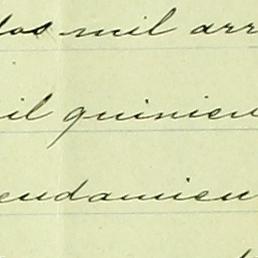 dos mil arr
il quinien
endamien